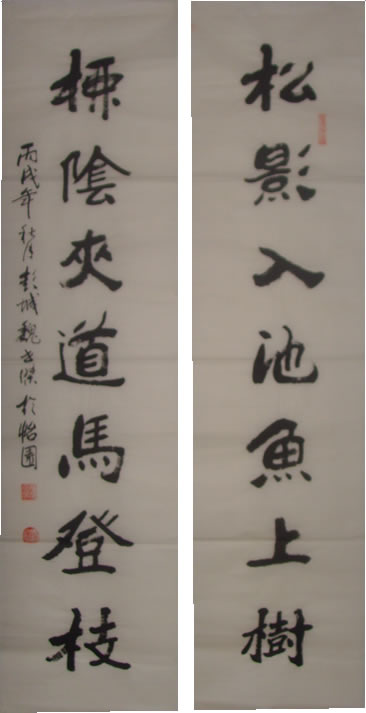 松影入池魚上樹
桺陰夾道馬登枝
丙戌年秋月彭城魏傑於怡園